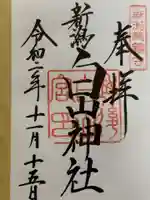 奉拝
新潟 白山神社
令和二年十一月十五日